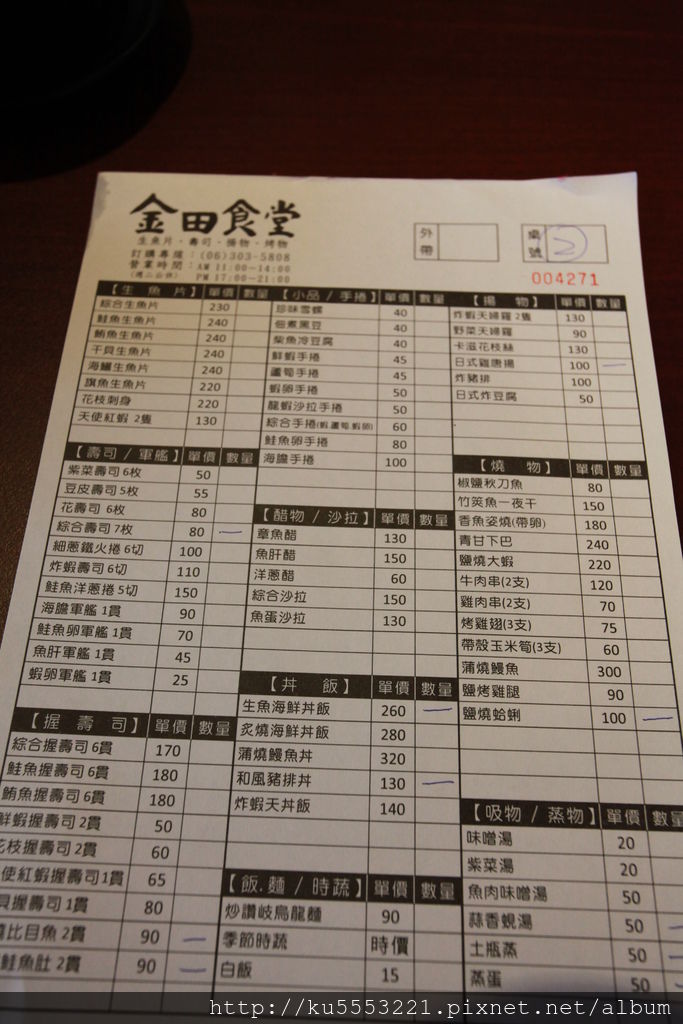 金田食堂
生魚片・壽司・揚物・烤物
訂購專線：(06)303-5808
營業時間：AM 11:00~14:00
(週二公休) PM 17:00~21:00
外帶
桌號 2
004271
【生 魚 片】 單價 數量
綜合生魚片 230
鮭魚生魚片 240
鮪魚生魚片 240
干貝生魚片 240
海鱺生魚片 240
旗魚生魚片 220
花枝刺身 220
天使紅蝦 2隻 130
【壽司 / 軍艦】 單價 數量
紫菜壽司 6枚 50
豆皮壽司 5枚 55
花壽司 6枚 80
綜合壽司 7枚 80 一
細蔥鐵火捲 6切 100
炸蝦壽司 6切 110
鮭魚洋蔥捲 5切 150
海膽軍艦 1貫 90
鮭魚卵軍艦 1貫 70
魚肝軍艦 1貫 45
蝦卵軍艦 1貫 25
【握 壽 司】 單價 數量
綜合握壽司 6貫 170
鮭魚握壽司 6貫 180
鮪魚握壽司 6貫 180
鮮蝦握壽司 2貫 50
花枝握壽司 2貫 60
使紅蝦握壽司 1貫 65
貝握壽司 1貫 80
比目魚 2貫 90 一
鮭魚肚 2貫 90 一
【小品 / 手捲】 單價 數量
珍味雪螺 40
佃煮黑豆 40
柴魚冷豆腐 40
鮮蝦手捲 45
蘆筍手捲 45
蝦卵手捲 50
龍蝦沙拉手捲 50
綜合手捲(蝦蘆筍蝦卵) 60
鮭魚卵手捲 80
海膽手捲 100
【醋物 / 沙拉】 單價 數量
章魚醋 130
魚肝醋 150
洋蔥醋 60
綜合沙拉 150
魚蛋沙拉 130
【丼 飯】 單價 數量
生魚海鮮丼飯 260 一
炙燒海鮮丼飯 280
蒲燒鰻魚丼 320
和風豬排丼 130 一
炸蝦天丼飯 140
【飯.麵 / 時蔬】 單價 數量
炒讚岐烏龍麵 90
季節時蔬 時價
白飯 15
【揚 物】 單價 數量
炸蝦天婦羅 2隻 130
野菜天婦羅 90
卡滋花枝絲 130
日式雞唐揚 100 一
炸豬排 100
日式炸豆腐 50
【燒 物】 單價 數量
椒鹽秋刀魚 80
竹筴魚一夜干 150
香魚姿燒(帶卵) 180
青甘下巴 240
鹽燒大蝦 220
牛肉串(2支) 120
雞肉串(2支) 70
烤雞翅(3支) 75
帶殼玉米筍(3支) 60
蒲燒鰻魚 300
鹽烤雞腿 90
鹽燒蛤蜊 100 一
【吸物 / 蒸物】 單價 數量
味噌湯 20
紫菜湯 20
魚肉味噌湯 50
蒜香蜆湯 50 一
土瓶蒸 50 一
蒸蛋 50 一
http://ku5553221.pixnet.net/album